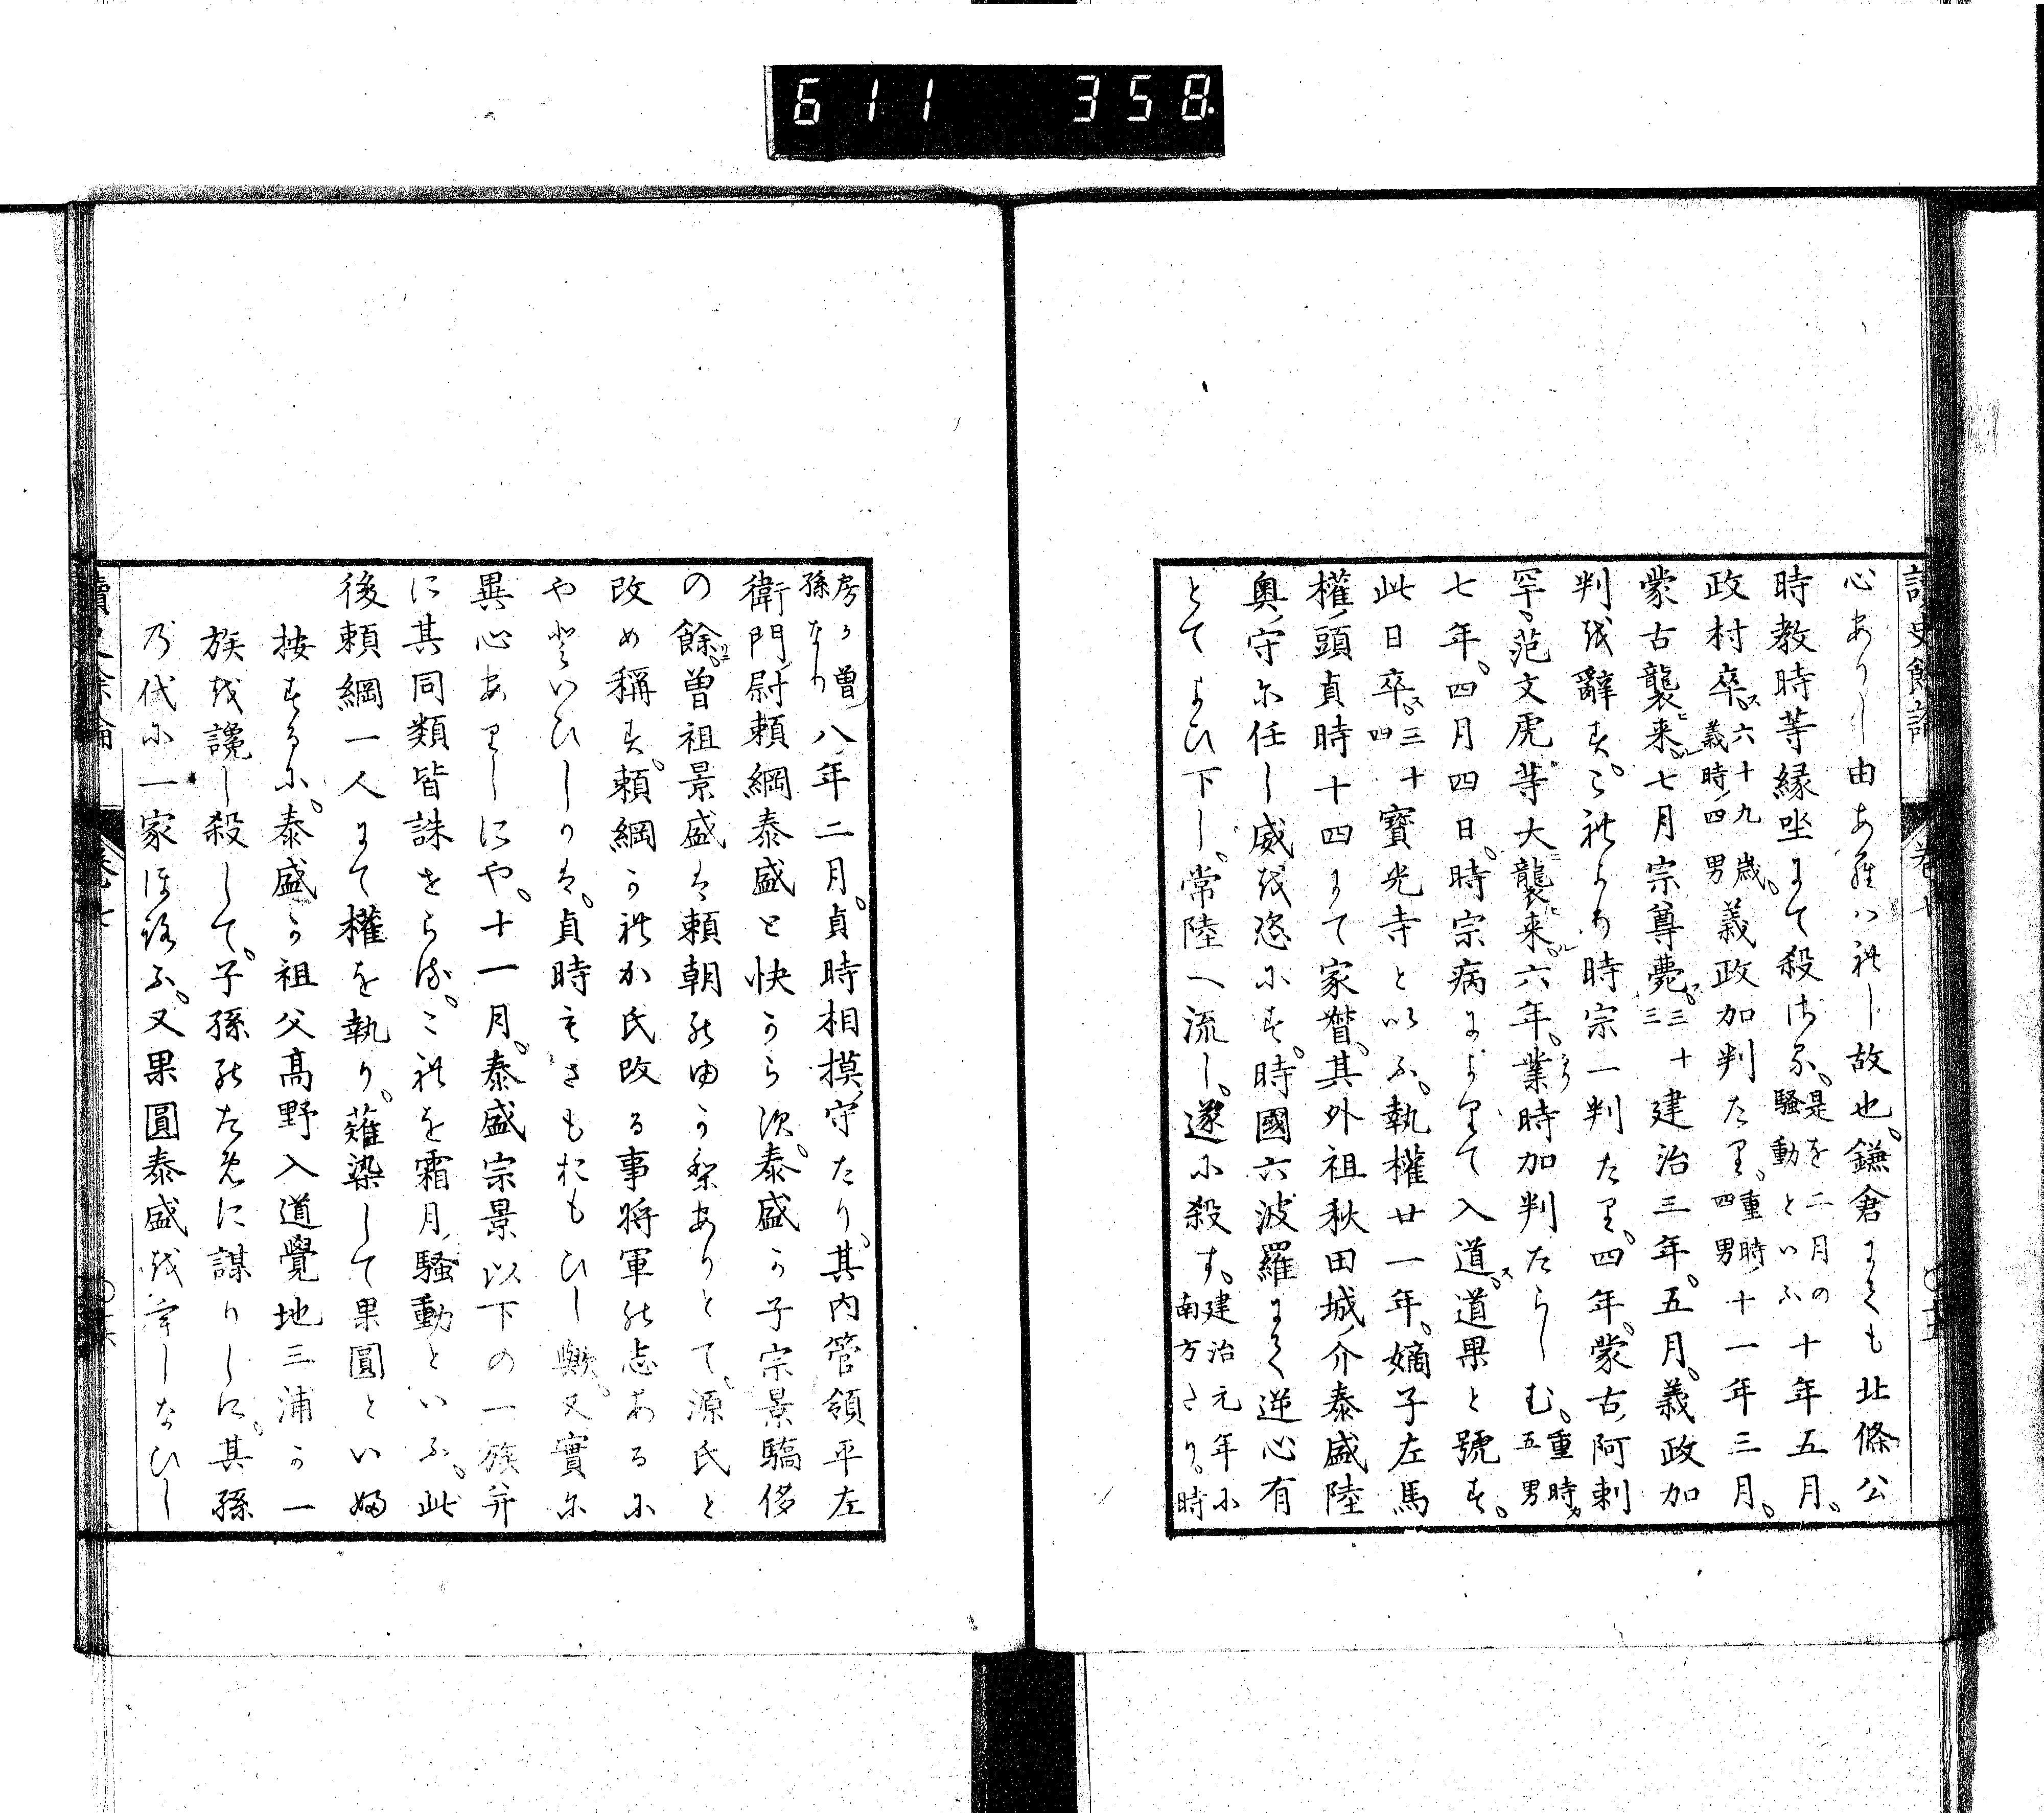 611 358
讀史餘論 卷七
心ありし由あれはれし故也。鎌倉にても北條公
時教時等縁坐にて殺さる。是を二月の騒動といふ十年五月。
政村卒ス。六十九歳。義時ノ四男義政加判たり。重時ノ四男十一年三月。
蒙古襲ヒ来ル。七月宗尊薨ズ。三十三建治三年。五月。義政加
判を辭す。これより時宗一判たり。四年。蒙古ノ阿剌
罕、范文虎等大ニ襲ヒ来ル。六年。業時加判たらしむ。重時ガ五男
七年。四月四日。時宗病によりて入道ス。道果と號す。
此日卒ス。三十四寶光寺といふ。執權廿一年。嫡子左馬
權ノ頭貞時十四にて家督。其外祖秋田城ノ介泰盛陸
奥ノ守に任し威を恣にす。時國六波羅にて逆心有
とてよひ下し。常陸へ流し。遂に殺す。建治元年に南方たり。時
房か曾孫なり八年二月。貞時相摸ノ守たり。其内管領平左
衛門ノ尉頼綱泰盛と快からす。泰盛か子宗景驕侈
の餘リ。曾祖景盛は頼朝のゆかりありとて。源氏と
改め稱す。頼綱かれか氏改る事将軍の志あるに
やといひしかは。貞時もさもおもひし歟。又實に
異心ありしにや。十一月。泰盛宗景以下の一族并
に其同類皆誅せらる。これを霜月ノ騒動といふ。此
後頼綱一人にて權を執り。薙染して果圓といふ
按するに。泰盛か祖父高野入道覺地三浦か一
族を讒し殺して。子孫のために謀りしに。其孫
乃代に一家ほろふ。又果圓泰盛を害しなひし
讀史餘論 卷七